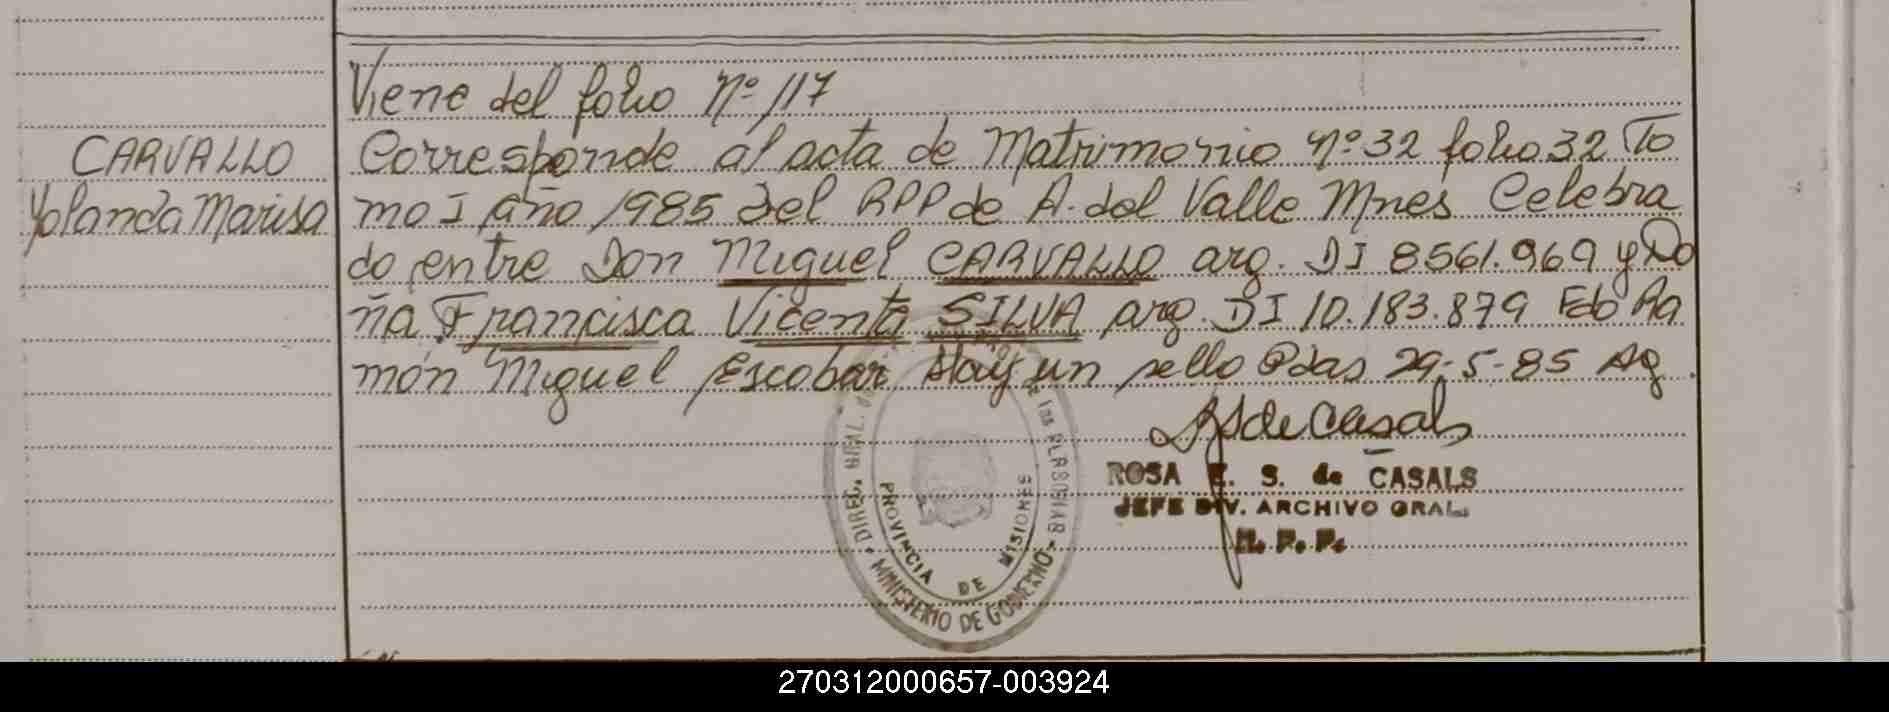 Viene del folio Nº 117
CARVALLO
Yolanda Marisa
Corresponde al acta de Matrimonio nº 32 folio 32 To
mo I año 1985 del RPP de A. del Valle Mnes Celebra
do entre Don Miguel CARVALLO arg. DI 8561.969 y Do
ña Francisca Vicenta SILVA arg. DI 10.183.879 Fdo Ra
món Miguel Escobar Hay un sello Pdas 29-5-85 Ag.
RS de Casals
ROSA E. S. de CASALS
JEFE DIV. ARCHIVO GRAL.
R. P. P.
DIREC. GRAL. DE LAS PERSONAS
PROVINCIA DE MISIONES
MINISTERIO DE GOBIERNO
270312000657-003924